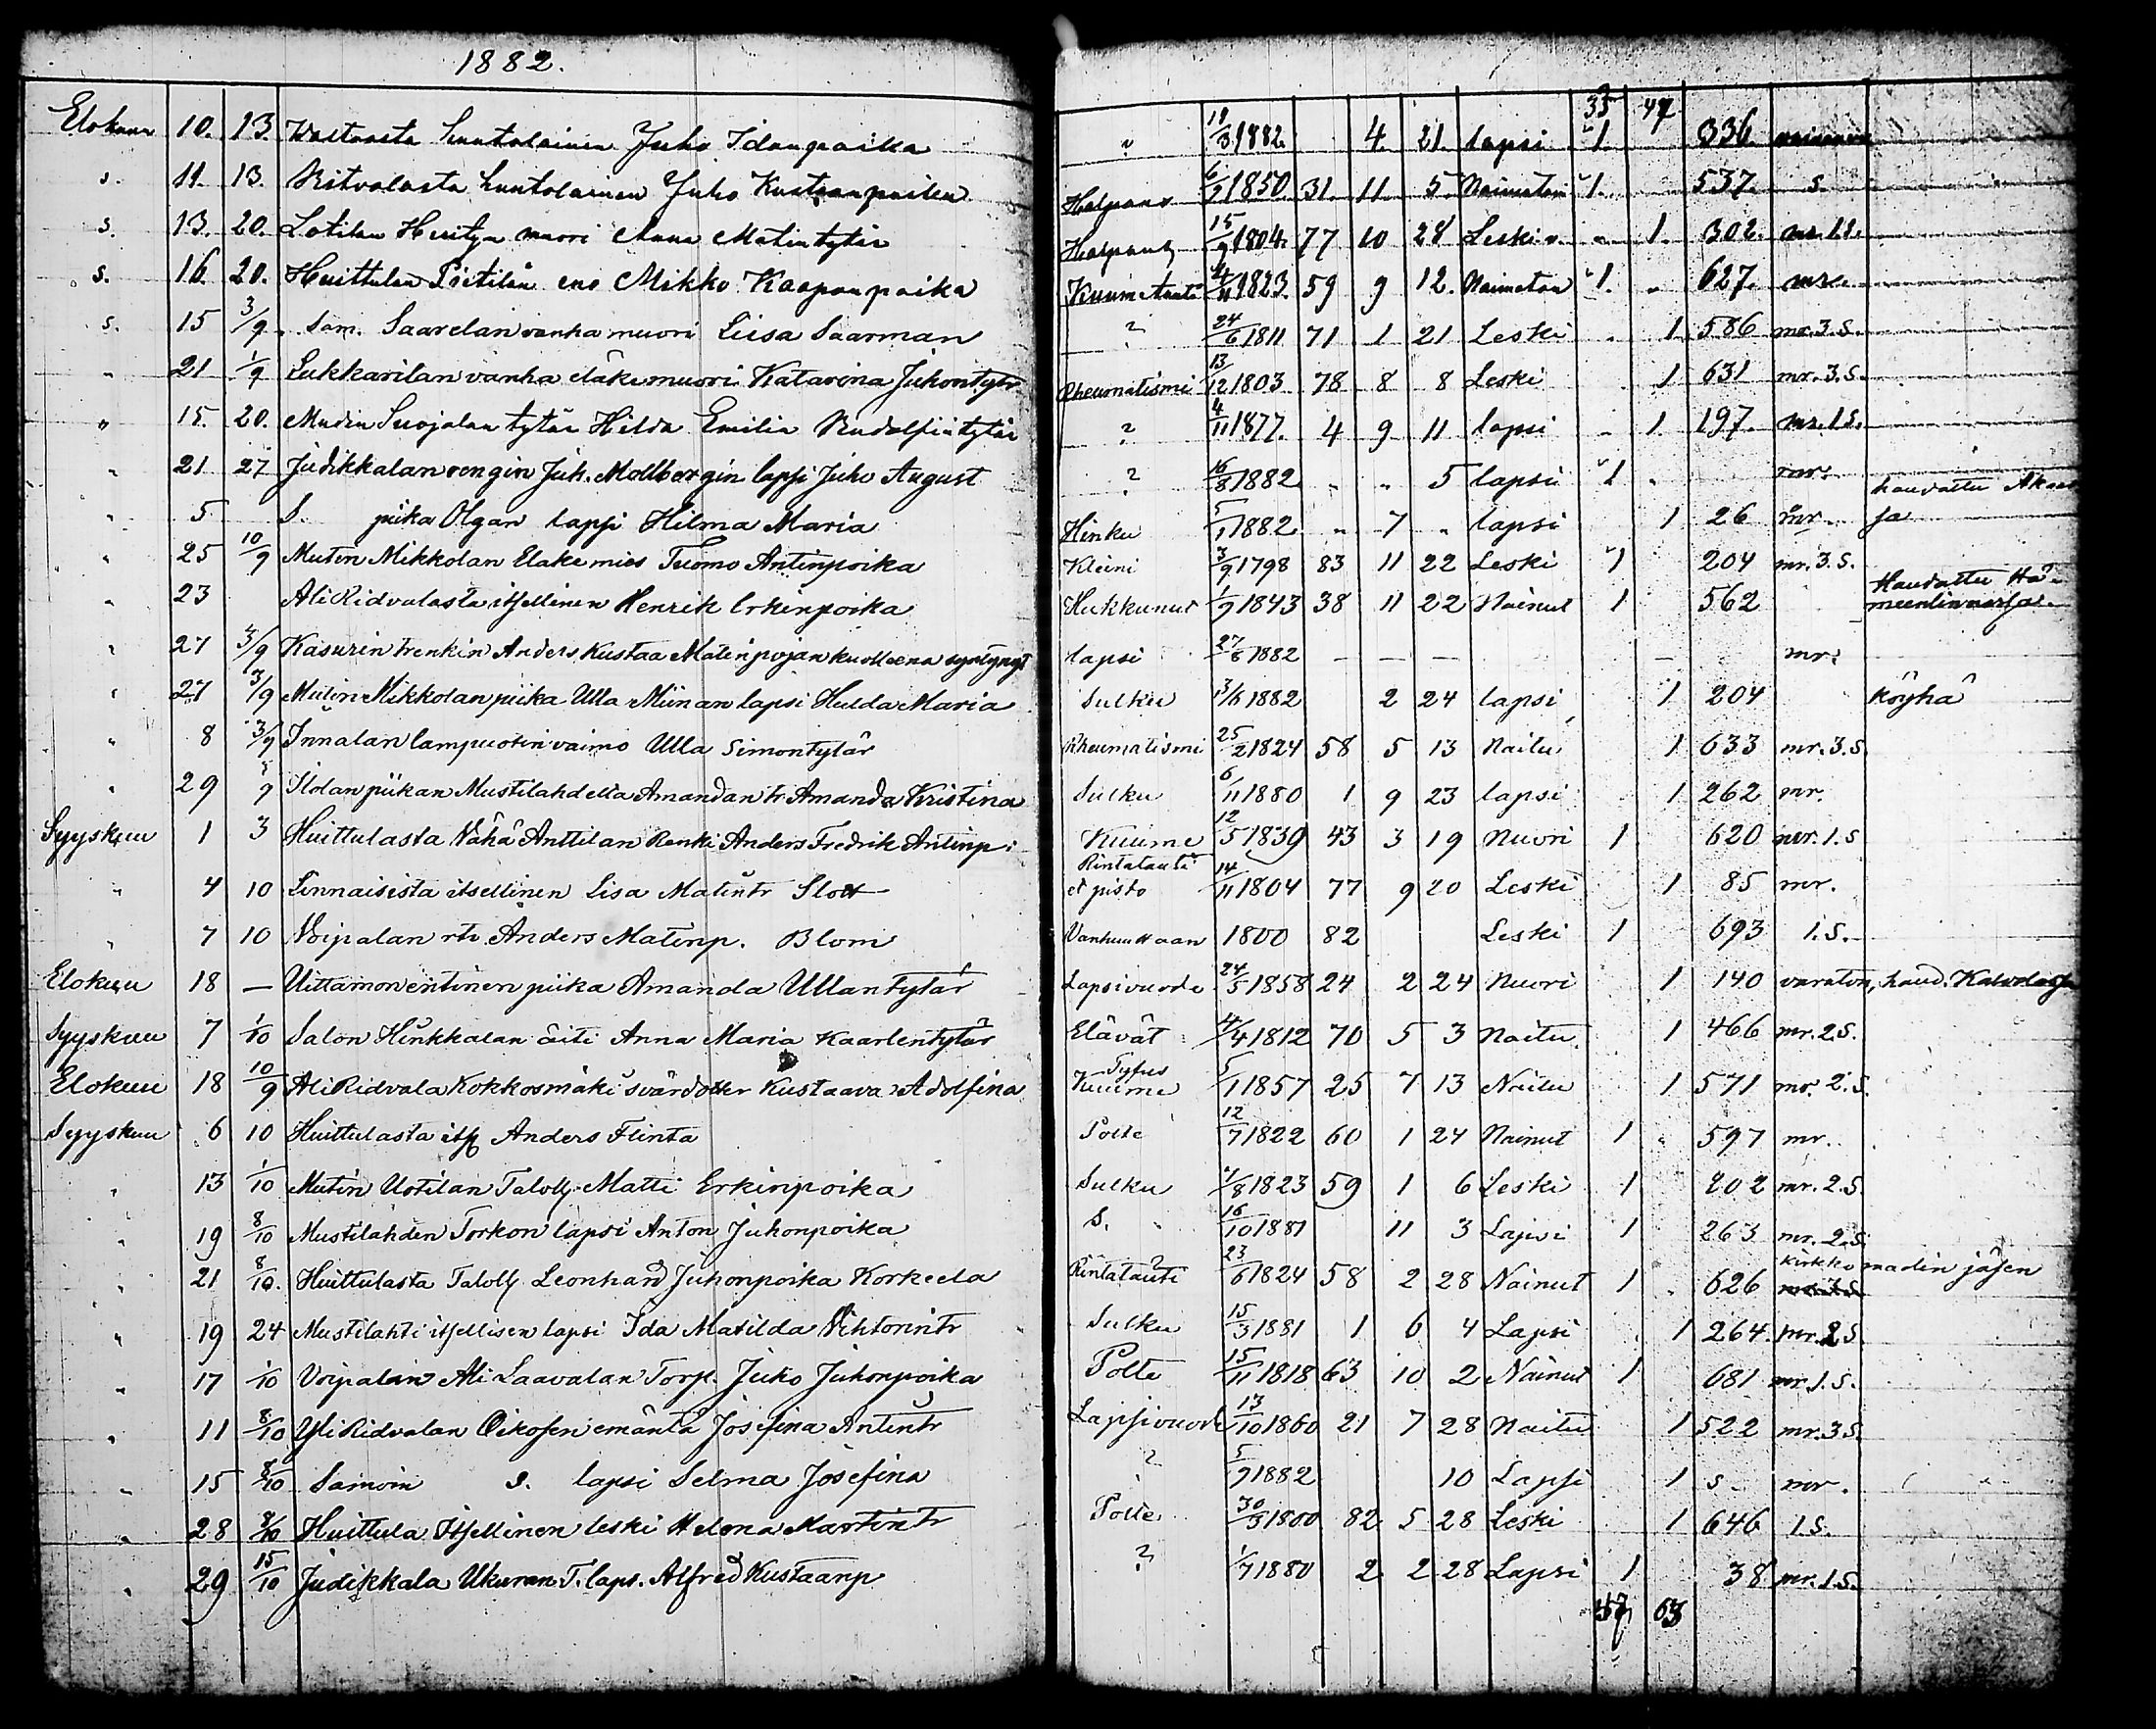 1882.
35 47
Elokuu 10. 13. huutolainen Juho Idanpoika " 19/3 1882. 4. 21. lapsi 1. 336.
s. 11. 13. Ritvalasta huutolainen Juho Kustaanpoika 6/9 1850. 31. 11. 5. Naimaton 1. 537. s.
s. 13. 20. Lotilan muori Anna Matintytär 15/9 1804. 77 10 28 Leski 1. 302. mr. 1 s.
s. 16. 20. Huittulan eno Mikko Kaapanpoika Kuumetauti 4/11 1823. 59 9 12. Naimaton 1. " 627. mr.
s. 15 3/9 Sam. Saarelan vanha muori Liisa Saarman ? 24/6 1811 71 1 21 Leski 1 586 mr. 3. s.
" 21 1/9 Lukkarilan vanha eläkemuori Katarina Juhontytr Rheumatismi 13/12 1803 78 8 8 Leski 1 631 mr. 3. s.
" 15. 20. Suojalan tytär Hilda Emilia Rudolfintytär ? 4/11 1877. 4 9 11 lapsi 1 197. mr. 1 s.
" 21 27 Judikkalan rengin Juh. Mollbergin lapsi Juho August ? 16/8 1882 " " 5 lapsi 1 mr. haudattu Akaas
" 5 S. piika Olgan lapsi Hilma Maria Hinku 5/1 1882 " 7 " lapsi 1 26 mr. sa
" 25 10/9 Mutin Mikkolan Eläkemies Tuomo Antinpoika Kleini 3/9 1798 83 11 22 Leski 1 204 mr. 3. s.
" 23 Ali Ridvalasta itsellinen Henrik Erkinpoika Hukkunut 1/9 1843 38 11 22 Nainut 1 562 Haudattu Hä-
meenlinnassa.
" 27 3/9 Kasurin trenkin Anders Kustaa Matinpojan kuolleena syntynyt lapsi 27/8 1882 — — — — mr.
" 27 3/9 Mutin Mikkolan piika Ulla Miinan lapsi Hulda Maria Sulku 3/6 1882 2 24 lapsi 1 204 köyhä
" 8 3/9 Innalan lampuotin vaimo Ulla Simontytär Rheumatismi 25/2 1824 58 5 13 Naitu 1 633 mr. 3. s
" 29 3/9 Ilolan piikan Mustilahdella Amandan tr Amanda Kristina Sulku 6/11 1880 1 9 23 lapsi 1 262 mr.
Syyskuu 1 3 Huittulasta Vähä Anttilan Renki Anders Fredrik Antinp: Kuume 12/5 1839 43 3 19 Nuori 1 620 mr. 1. s
" 4 10 Linnaisista itsellinen Lisa Matintr Slott Rintatauti
et pisto 14/11 1804 77 9 20 Leski 1 85 mr.
" 7 10 Voipalan rtv. Anders Matinp. Blom Vanhuuttaan 1800 82 Leski 1 693 1. s.
Elokuu 18 — Uittamon entinen piika Amanda Ullantytär Lapsivuode 24/5 1858 24 2 24 Nuori 1 140 varaton, haud. Kalvolassa
Syyskuu 7 1/10 Salon Hinkkalan äiti Anna Maria Kaarlentytär Elävät 4/4 1812 70 5 3 Naitu. 1 466 mr. 2 s.
Elokuu 18 10/9 Ali Ridvala Kokkosmäki svärdotter Kustaava Adolfina Tyfus
Kuume 5/1 1857 25 7 13 Naitu 1 571 mr. 2. s.
Syyskuu 6 10 Huittulasta its Anders Flinta Polte 12/7 1822 60 1 24 Nainut 1 597 mr.
" 13 1/10 Mutin Uotilan Taloll. Matti Erkinpoika Sulku 7/8 1823 59 1 6 Leski 1 202 mr. 2. s.
" 19 8/10 Mustilahden Torkon lapsi Anton Juhonpoika S. 16/10 1881 11 3 Lapsi 1 263 mr. 2. s.
" 21 8/10. Huittulasta Taloll Leonhard Juhonpoika Korkeela Rintatauti 23/6 1824 58 2 28 Nainut 1 626 kirkko raadin jäsen
" 19 24 Mustilahti itsellisen lapsi Ida Matilda Vihtorintr Sulku 15/3 1881 1 6 4 Lapsi 1 264. mr. 2 s.
" 17 1/10 Voipalan Ali Laavalan Torp. Juho Juhonpoika Polte 15/11 1818 63 10 2 Nainut 1 681 mr. 1. s.
" 11 8/10 Yli Ridvalan Oikosen emäntä Josefina Antintr Lapsivuode 13/10 1860 21 7 28 Naitu 1 522 mr. 3 s.
" 15 8/10 Samoin s. lapsi Selma Josefina ? 5/9 1882 10 Lapsi 1 s mr.
" 28 8/10 Huittula Itsellinen leski Helena Martintr Polte 30/3 1800 82 5 28 Leski 1 646 1 s.
" 29 15/10 Judikkala Ukuran T. laps. Alfred Kustaanp ? 1/7 1880 2 2 28 Lapsi 1 38 mr. 1. s.
63